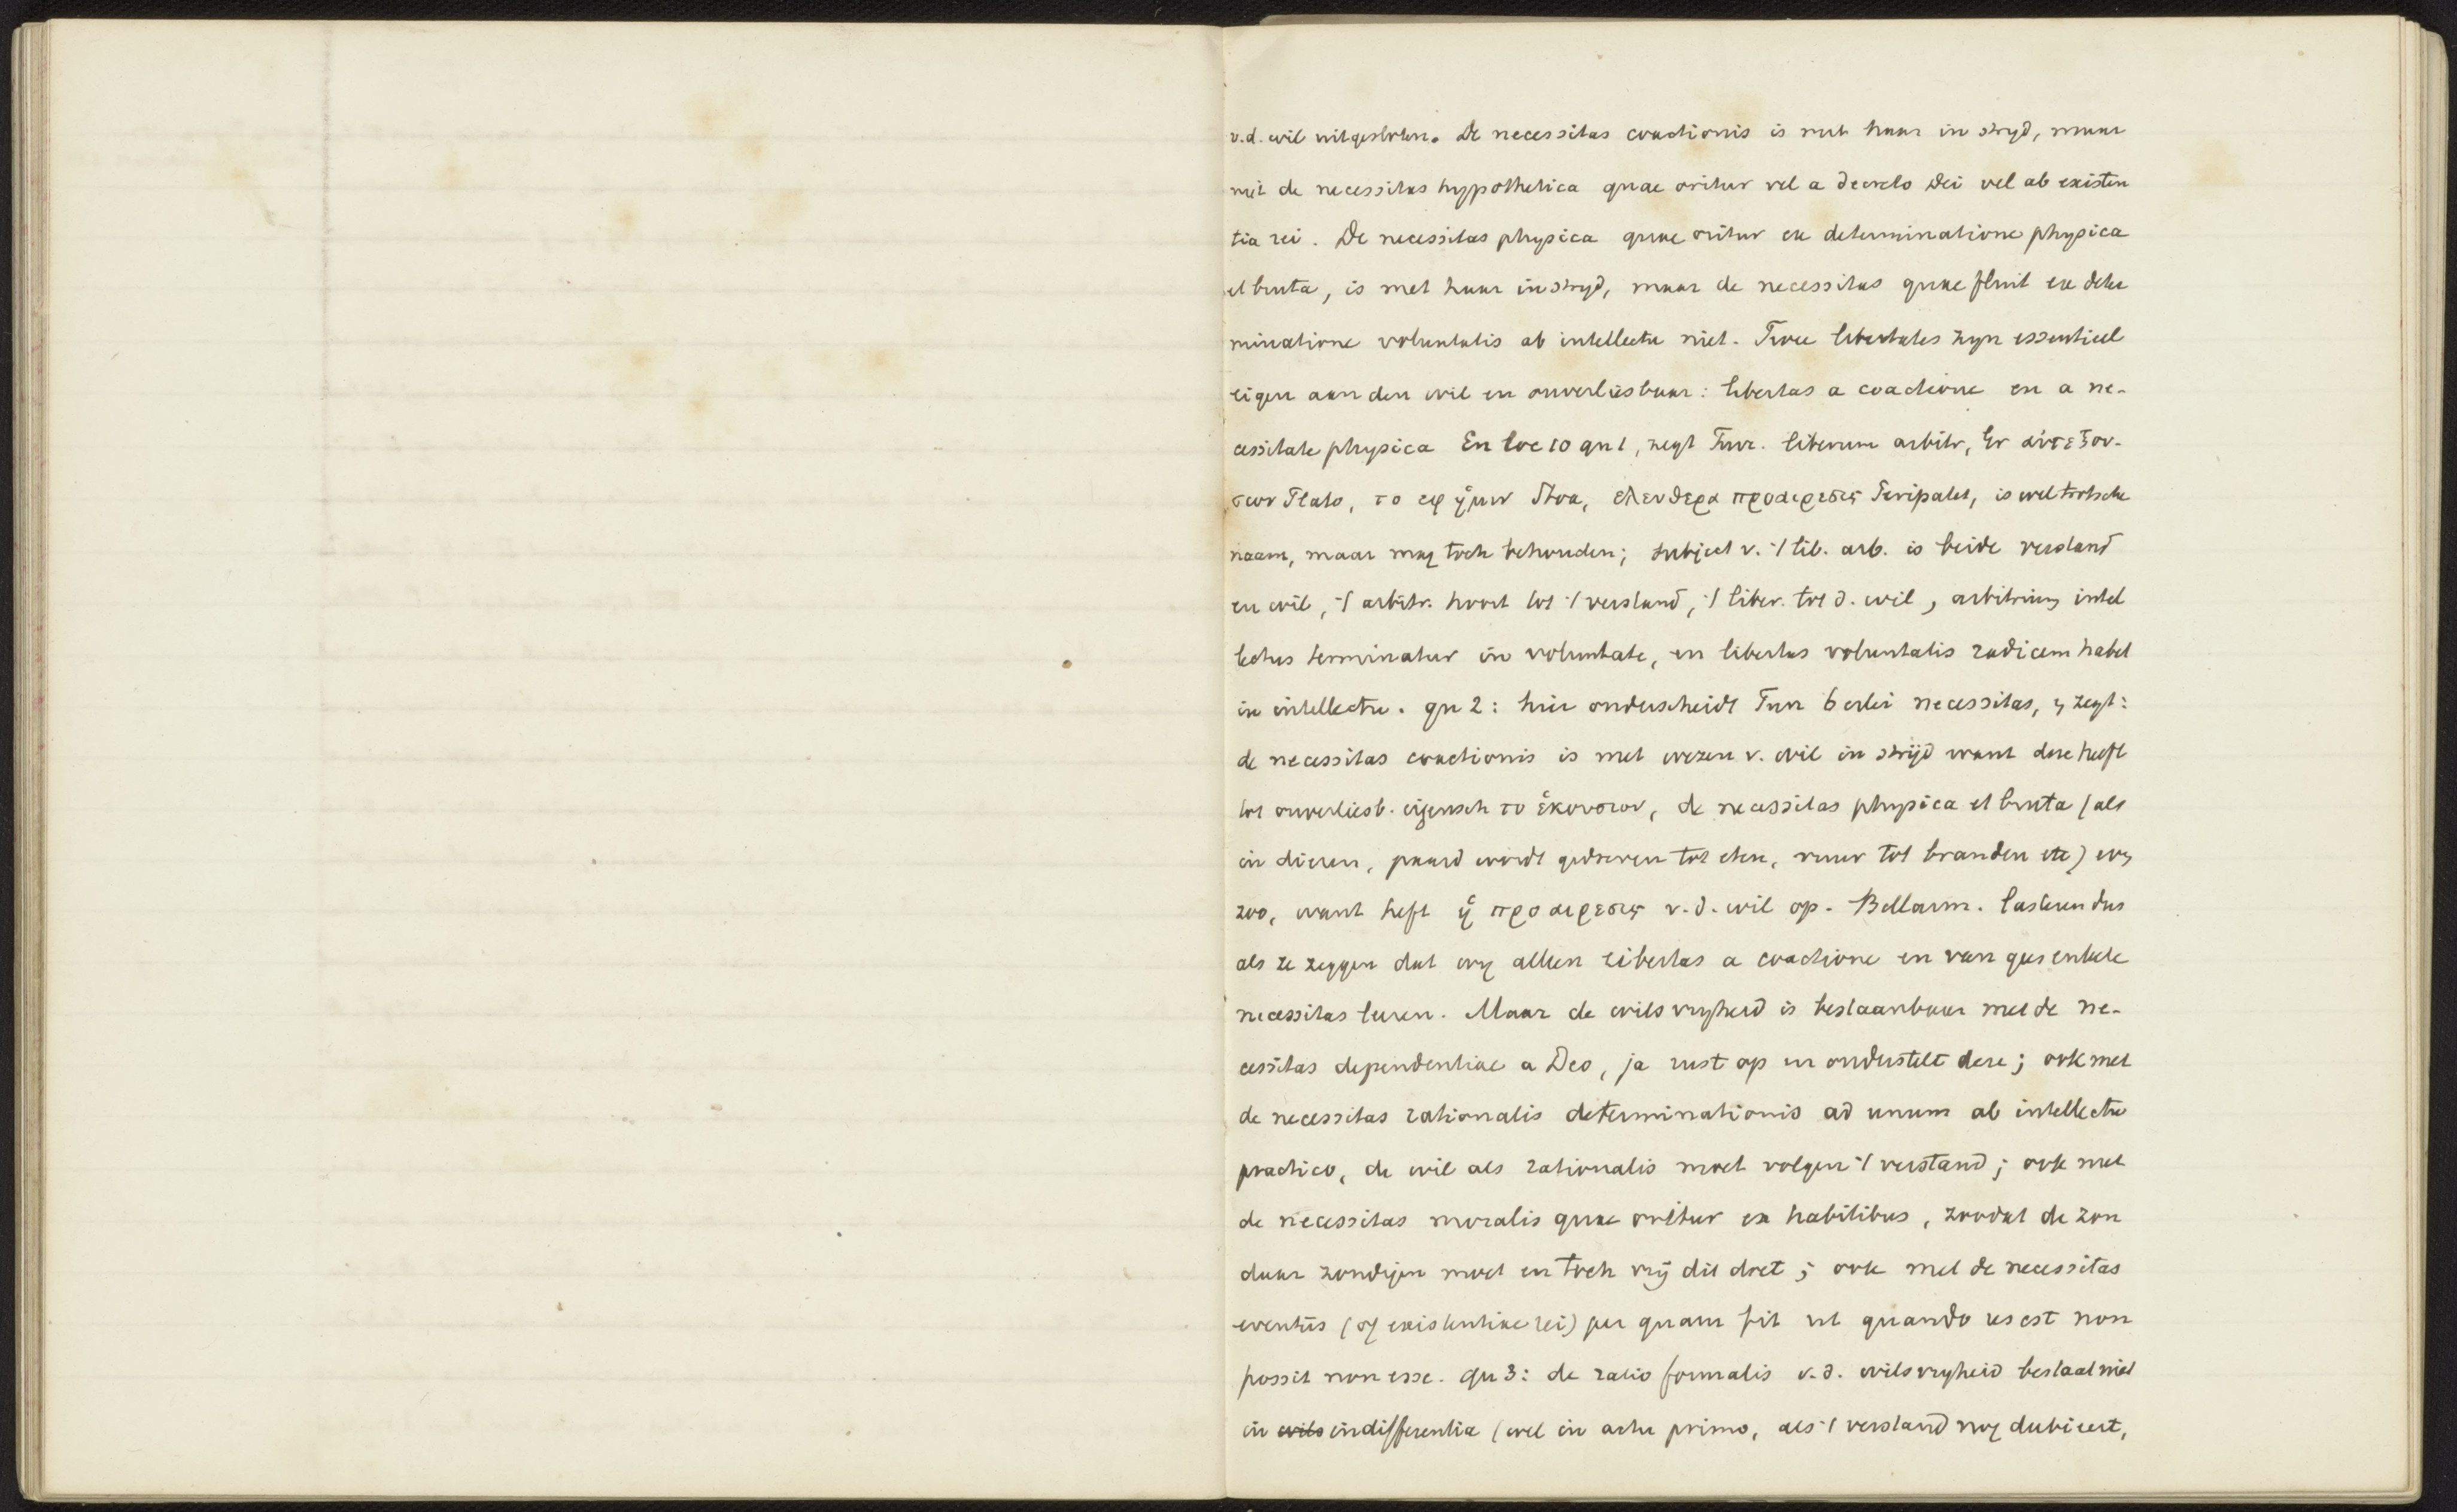 v.d. wil uitgesloten. De necessitas coactionis is met haar in stryd, maar
niet de necessitas hypothetica quae oritur vel a decreto Dei vel ab existen
tia rei. De necessitas physica quae oritur ex determinatione physica
et bruta, is met haar in stryd, maar de necessitas quae fluit ex deter
minatione voluntatis ab intellectu niet. Twee libertates zyn essentieel
eigen aan den wil en onverliesbaar: libertas a coactione en a ne-
cessitate physica En loc 10 qu 1, zegt Turr. liberum arbitr, Gr αυτεξου-
σιον Plato, το εφ ἡμιν Stoa, ελευθερα προαιρεσις Peripatet, is wel trotsche
naam, maar mag toch behouden; subject v. 't lib. arb. is beide verstand
en wil, 't arbitr. hoort tot 't verstand, 't liber. tot d. wil, arbitrium intel
lectus terminatur in voluntate, en libertas voluntatis radicem habet
in intellectu. qu 2: hier onderscheidt Turr 6 erlei necessitas, en zegt:
de necessitas coactionis is met wezen v. wil in strijd want deze heeft
tot onverliesb. eigensch το ἑκουσιον, de necessitas physica et bruta (als
in dieren, paard wordt gedreven tot eten, vuur tot branden etc) evenzoo
zoo, want heft ἡ προαιρεσις v.d. wil op. Bellarm. lasteren dus
als ze zeggen dat wy alleen libertas a coactione en van geen enkele
necessitas leeren. Maar de wilsvryheid is bestaanbaar met de ne-
cessitas dependentiae a Deo, ja rust op en onderstelt deze; ook met
de necessitas rationalis determinationis ad unum ab intellectu
practico, de wil als rationalis moet volgen 't verstand; ook met
de necessitas moralis quae oritur ex habitibus, zoodat de zon
daar zondigen moet en toch vrij dit doet; ook met de necessitas
eventus (of existentiae rei) per quam fit ut quando res est non
possit non esse. qu 3: de ratio formalis v.d. wilsvryheid bestaat niet
in wils indifferentia (wel in actu primo, als 't verstand nog dubieert,